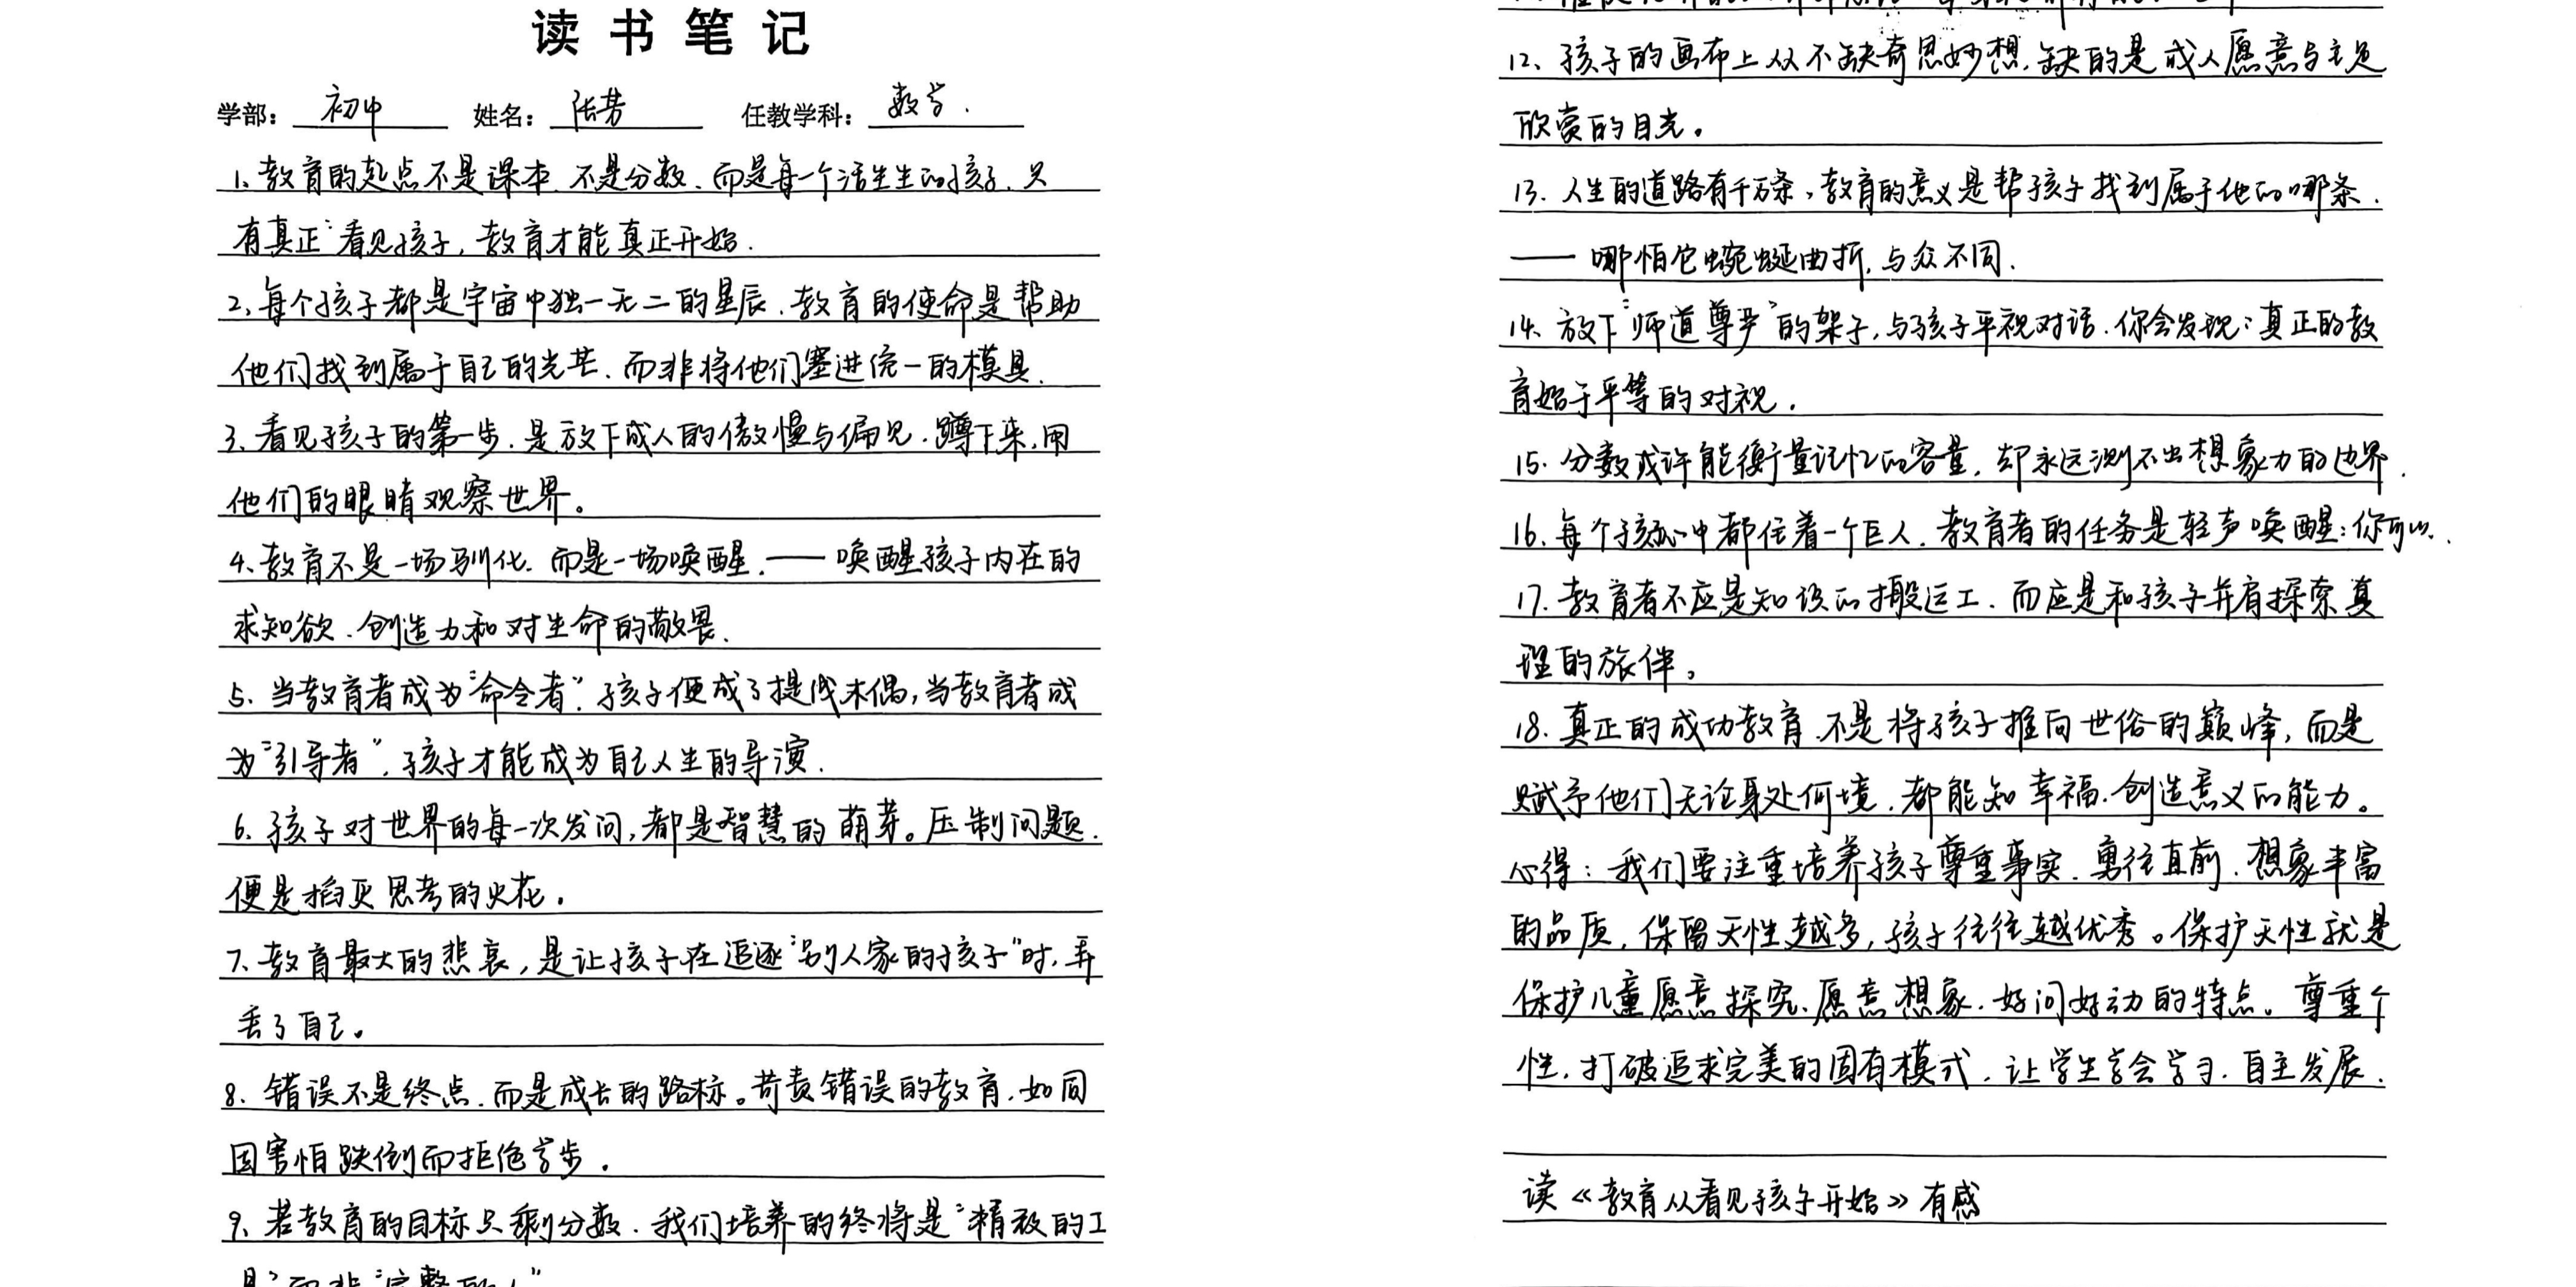 读书笔记
学部：初中 姓名：张芳 任教学科：数学.
1、教育的起点不是课本、不是分数、而是每一个活生生的孩子、只
有真正“看见孩子，教育才能真正开始.
2、每个孩子都是宇宙中独一无二的星辰、教育的使命是帮助
他们找到属于自己的光芒、而非将他们塞进统一的模具.
3、看见孩子的第一步、是放下成人的傲慢与偏见、蹲下来，用
他们的眼睛观察世界。
4、教育不是一场驯化、而是一场唤醒、——唤醒孩子内在的
求知欲、创造力和对生命的敬畏.
5、当教育者成为“命令者”，孩子便成了提线木偶，当教育者成
为“引导者”，孩子才能成为自己人生的导演.
6、孩子对世界的每一次发问，都是智慧的萌芽。压制问题.
便是掐灭思考的火花.
7、教育最大的悲哀，是让孩子在追逐“别人家的孩子”时，弄
丢了自己。
8、错误不是终点、而是成长的路标。苛责错误的教育、如同
因害怕跌倒而拒绝学步.
9、若教育的目标只剩分数、我们培养的终将是“精致的工
具”而非“完整的人”
12、孩子的画布上从不缺奇思妙想，缺的是成人愿意与
欣赏的目光。
13、人生的道路有千万条，教育的意义是帮孩子找到属于他的哪条.
——哪怕它蜿蜒曲折，与众不同.
14、放下“师道尊严”的架子，与孩子平视对话、你会发现：真正的教
育始于平等的对视.
15、分数或许能衡量记忆的容量，却永远测不出想象力的边界.
16、每个孩心中都住着一个巨人、教育者的任务是轻声唤醒：你可以.
17、教育者不应是知识的搬运工、而应是和孩子并肩探索真
理的旅伴。
18、真正的成功教育、不是将孩子推向世俗的巅峰，而是
赋予他们无论身处何境、都能知幸福、创造意义的能力。
心得：我们要注重培养孩子尊重事实、勇往直前、想象丰富
的品质，保留天性越多，孩子往往越优秀。保护天性就是
保护儿童愿意探究、愿意想象、好问好动的特点。尊重个
性，打破追求完美的固有模式、让学生学会学习、自主发展.
读《教育从看见孩子开始》有感